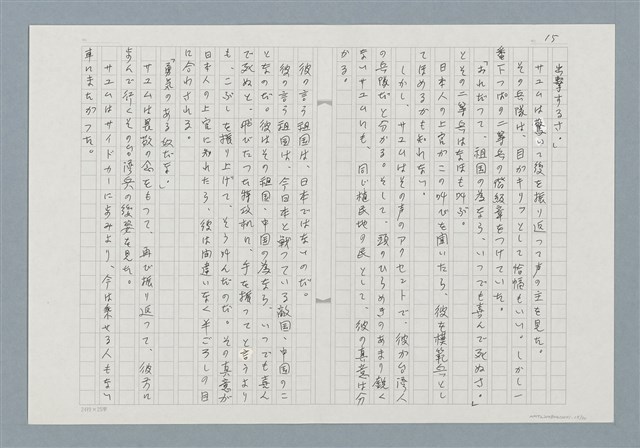 15
出撃するさ。」
サユムは驚いて後を振り返って声の主を見た。
その兵隊は、目がキリッとして恰幅もいい。しかし一
番下っぱの二等兵の階級章をつけていた。
「おれだって、祖国の為なら、いつでも喜んで死ぬさ。」
とその二等兵はなほも叫ぶ。
日本人の上官がこの叫びを聞いたら、彼を模範兵として
てほめるかも知れない。
しかし、サユムはその声のアクセントで、彼が台湾人
の兵隊だと分かる。そして、頭のひらめきのあまり鋭く
ないサユムにも、同じ植民地の民として、彼の真意は分
かる。
彼の言う祖国は、日本ではないのだ。
彼の言う祖国は、今日本と戦っている敵国、中国のこ
となのだ。彼はその祖国、中国の為なら、いつでも喜ん
で死ぬと、叫びたつた特攻機に、手を振ってと言うより
も、こぶしを振り上げて、そう叫んだのだ。その真意が
日本人の上官に知れたら、彼は間違いなく半ごろしの目
に合わされる。
「勇気のある奴だな。」
サユムは畏敬の念をもって、再び振り返って、彼方に
歩んで行くその台湾兵の後姿を見た。
サユムはサイドカーにあゆみより、今は乗せる人もない
車にまたがった。